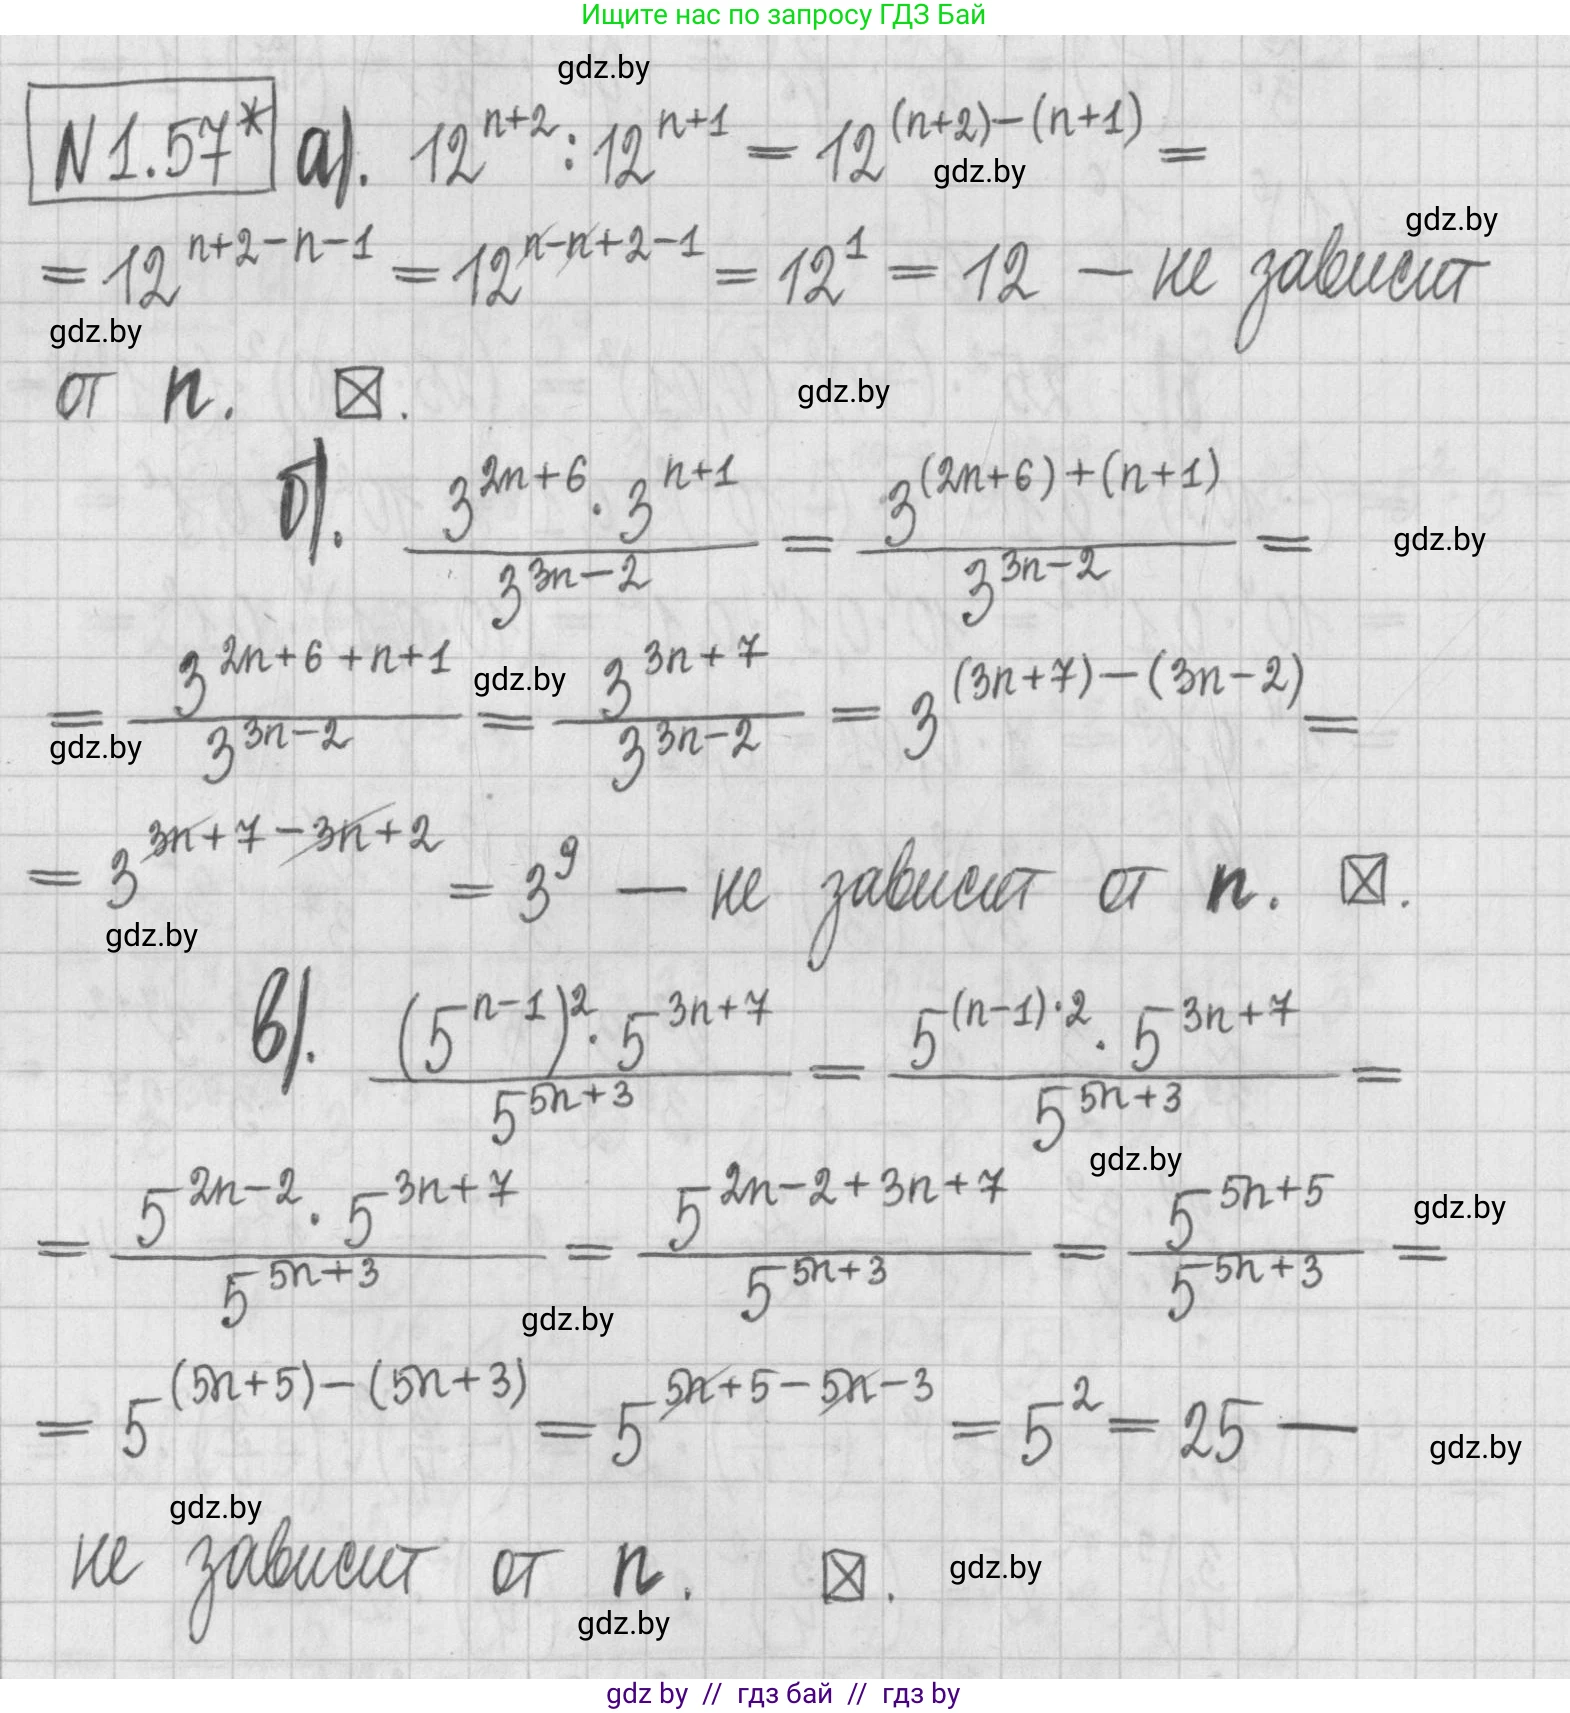 Ищите нас по запросу ГДЗ Бай
gdz.by
N1.57* а). 12^{n+2} : 12^{n+1} = 12^{(n+2)-(n+1)} =
gdz.by
gdz.by
= 12^{n+2-n-1} = 12^{n-n+2-1} = 12^1 = 12 — не зависит
gdz.by
от n. ☒.
gdz.by
б). \frac{3^{2n+6} · 3^{n+1}}{3^{3n-2}} = \frac{3^{(2n+6)+(n+1)}}{3^{3n-2}} =
gdz.by
= \frac{3^{2n+6+n+1}}{3^{3n-2}} = \frac{3^{3n+7}}{3^{3n-2}} = 3^{(3n+7)-(3n-2)} =
gdz.by
gdz.by
= 3^{3n+7-3n+2} = 3^9 — не зависит от n. ☒.
gdz.by
в). \frac{(5^{n-1})^2 · 5^{3n+7}}{5^{5n+3}} = \frac{5^{(n-1)·2} · 5^{3n+7}}{5^{5n+3}} =
gdz.by
= \frac{5^{2n-2} · 5^{3n+7}}{5^{5n+3}} = \frac{5^{2n-2+3n+7}}{5^{5n+3}} = \frac{5^{5n+5}}{5^{5n+3}} =
gdz.by
gdz.by
= 5^{(5n+5)-(5n+3)} = 5^{5n+5-5n-3} = 5^2 = 25 —
gdz.by
gdz.by
не зависит от n. ☒.
gdz.by
gdz.by
gdz by // гдз бай // гдз by